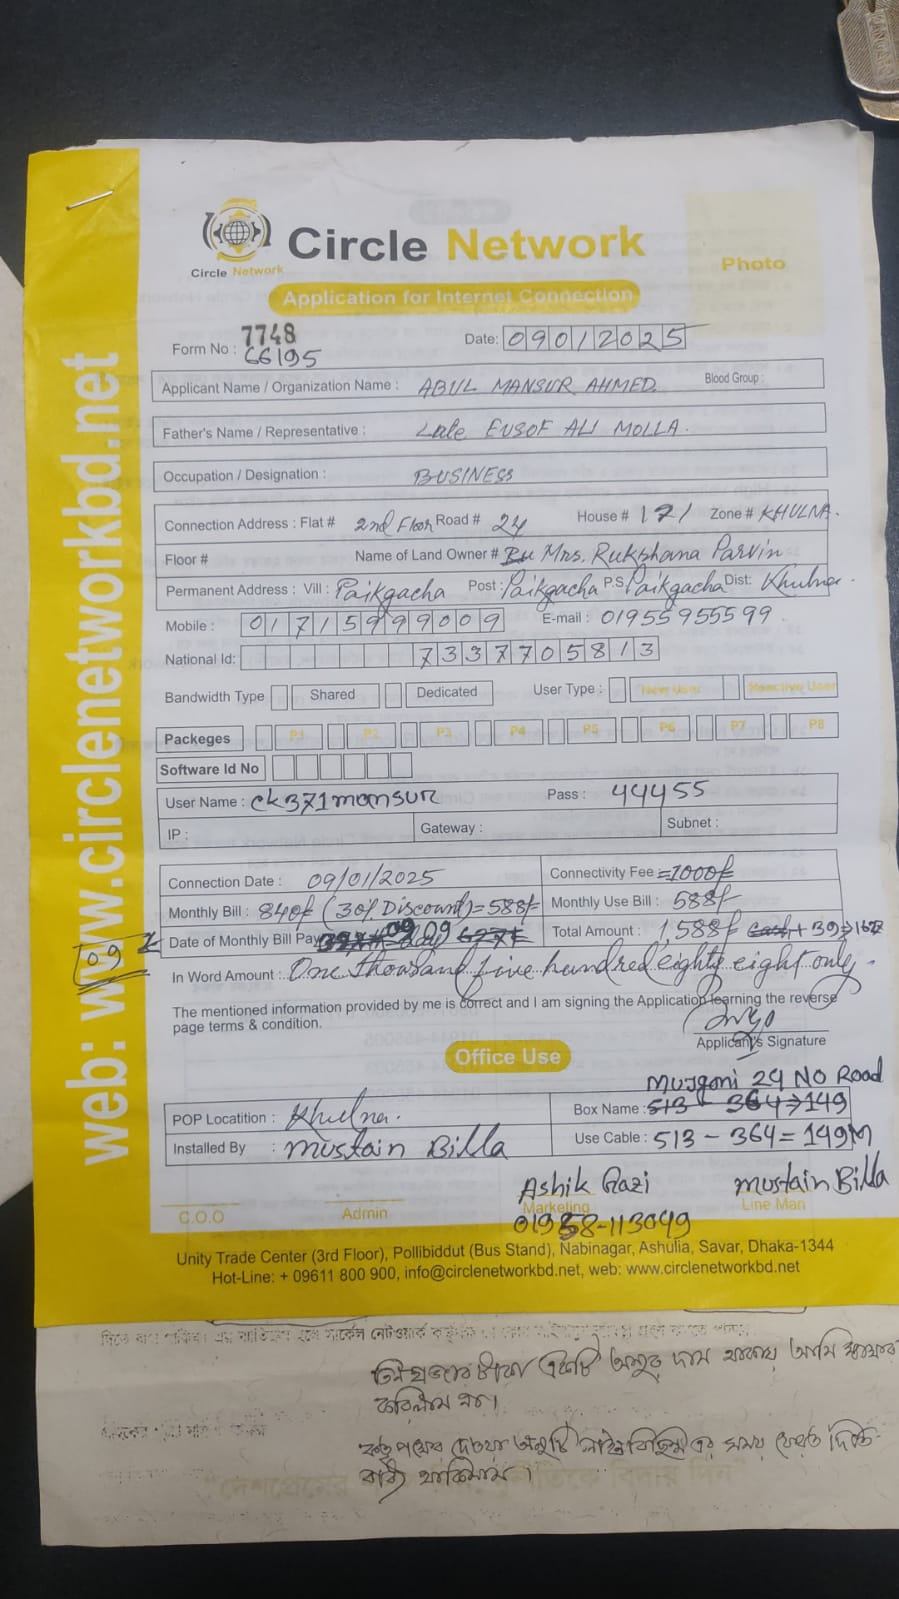 Circle Network
Circle Network
Photo
Application for Internet Connection
Form No : 7748
66195
Date: 09012025
Applicant Name / Organization Name : ABUL MANSUR AHMED. Blood Group :
Father's Name / Representative : Late EUSOF ALI MOLLA.
Occupation / Designation : BUSINESS
Connection Address : Flat # 2nd Floor Road # 24 House # 171 Zone # KHULNA.
Floor # Name of Land Owner # Mrs. Rukshana Parvin
Permanent Address : Vill : Paikgacha Post : Paikgacha P.S Paikgacha Dist: Khulna.
Mobile : 01715999009 E-mail : 01955955599
National Id: 7337705813
Bandwidth Type Shared Dedicated User Type : New User Reactive User
Packeges P1 P2 P3 P4 P5 P6 P7 P8
Software Id No
User Name : ck371mansur Pass : 44455
IP : Gateway : Subnet :
Connection Date : 09/01/2025 Connectivity Fee =1000/=
Monthly Bill : 840/= (30% Discount) = 588/= Monthly Use Bill : 588/=
09 Date of Monthly Bill Pay 09 Total Amount : 1,588/= + 39
In Word Amount : One thousand five hundred eighty eight only.
The mentioned information provided by me is correct and I am signing the Application learning the reverse
page terms & condition.
Applicant's Signature
Office Use
Musgoni 24 NO Road
POP Locatition : Khulna. Box Name : 513 - 364 => 149
Installed By : Mustain Billa Use Cable : 513 - 364 = 149M
Ashik Gazi Mustain Billa
C.O.O Admin Marketing Line Man
01958-113049
Unity Trade Center (3rd Floor), Pollibiddut (Bus Stand), Nabinagar, Ashulia, Savar, Dhaka-1344
Hot-Line: + 09611 800 900, info@circlenetworkbd.net, web: www.circlenetworkbd.net
web: www.circlenetworkbd.net
টাকা একটি অনুর দাম থাকায় আমি
করিলাম না।
দেওয়া অনুটি সময় ফেরত দিতে
বাধ্য থাকিলাম।